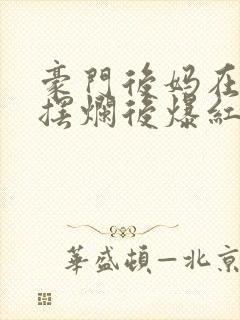 豪門後妈在
摆爛後爆紅
華盛頓—北京